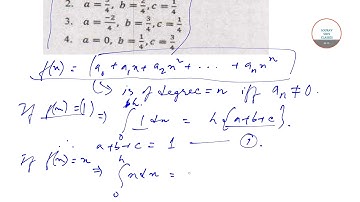 2. a = 3/4, b = 2/4, c = 1/4
3. a = -2/4, b = 3/4, c = 1/4
4. a = 0, b = 1/4, c = 3/4
f(x) = (a₀ + a₁x + a₂x² + ... + aₙxⁿ
↳ is of degree = n iff aₙ ≠ 0.
If f(x) = (1) ⇒ ∫₀ʰ 1 dx = h{a+b+c}.
∴ a+b+c = 1 — ①.
If f(x) = x ⇒ ∫₀ʰ x dx =